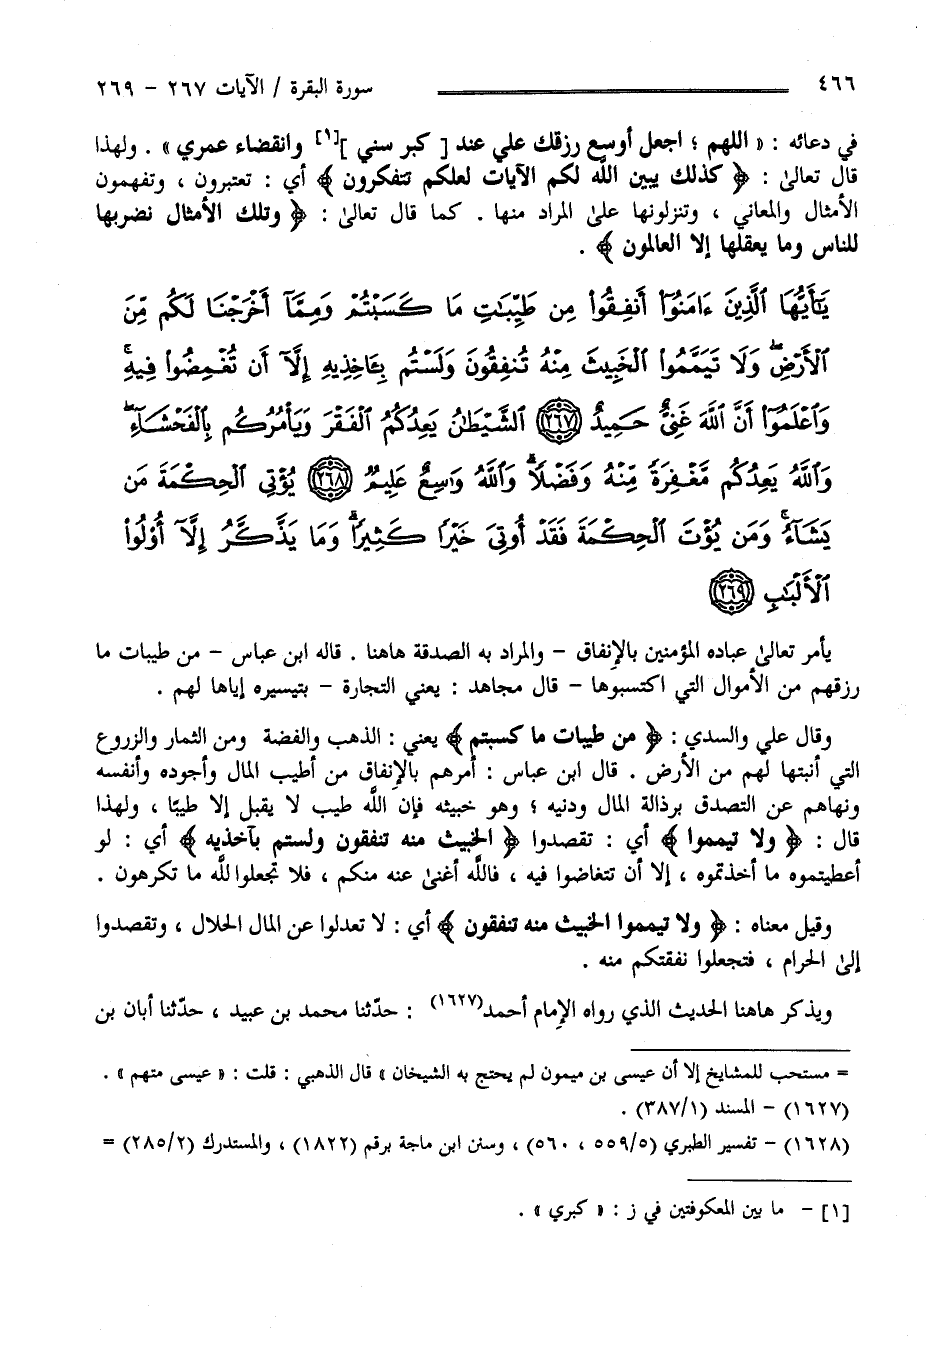 ٤٦٦ سورة البقرة / الآيات ٢٦٧ - ٢٦٩
في دعائه : « اللهم ؛ اجعل أوسع رزقك علي عند [ كبر سني ][١] وانقضاء عمري » . ولهذا
قال تعالىٰ : ﴿ كذلك يبين اللَّه لكم الآيات لعلكم تتفكرون ﴾ أي : تعتبرون ، وتفهمون
الأمثال والمعاني ، وتنزلونها علىٰ المراد منها . كما قال تعالىٰ : ﴿ وتلك الأمثال نضربها
للناس وما يعقلها إلا العالمون ﴾ .
يَٰٓأَيُّهَا ٱلَّذِينَ ءَامَنُوٓا۟ أَنفِقُوا۟ مِن طَيِّبَٰتِ مَا كَسَبْتُمْ وَمِمَّآ أَخْرَجْنَا لَكُم مِّنَ
ٱلْأَرْضِ ۖ وَلَا تَيَمَّمُوا۟ ٱلْخَبِيثَ مِنْهُ تُنفِقُونَ وَلَسْتُم بِـَٔاخِذِيهِ إِلَّآ أَن تُغْمِضُوا۟ فِيهِ ۚ
وَٱعْلَمُوٓا۟ أَنَّ ٱللَّهَ غَنِىٌّ حَمِيدٌ ٢٦٧ ٱلشَّيْطَٰنُ يَعِدُكُمُ ٱلْفَقْرَ وَيَأْمُرُكُم بِٱلْفَحْشَآءِ ۖ
وَٱللَّهُ يَعِدُكُم مَّغْفِرَةً مِّنْهُ وَفَضْلًا ۗ وَٱللَّهُ وَٰسِعٌ عَلِيمٌ ٢٦٨ يُؤْتِى ٱلْحِكْمَةَ مَن
يَشَآءُ ۚ وَمَن يُؤْتَ ٱلْحِكْمَةَ فَقَدْ أُوتِىَ خَيْرًا كَثِيرًا ۗ وَمَا يَذَّكَّرُ إِلَّآ أُو۟لُوا۟
ٱلْأَلْبَٰبِ ٢٦٩
يأمر تعالىٰ عباده المؤمنين بالإنفاق - والمراد به الصدقة هاهنا . قاله ابن عباس - من طيبات ما
رزقهم من الأموال التي اكتسبوها - قال مجاهد : يعني التجارة - بتيسيره إياها لهم .
وقال علي والسدي : ﴿ من طيبات ما كسبتم ﴾ يعني : الذهب والفضة ومن الثمار والزروع
التي أنبتها لهم من الأرض . قال ابن عباس : أمرهم بالإنفاق من أطيب المال وأجوده وأنفسه
ونهاهم عن التصدق برذالة المال ودنيه ؛ وهو خبيثه فإن اللَّه طيب لا يقبل إلا طيبًا ، ولهذا
قال : ﴿ ولا تيمموا ﴾ أي : تقصدوا ﴿ الخبيث منه تنفقون ولستم بآخذيه ﴾ أي : لو
أعطيتموه ما أخذتموه ، إلا أن تتغاضوا فيه ، فاللَّه أغنىٰ عنه منكم ، فلا تجعلوا للَّه ما تكرهون .
وقيل معناه : ﴿ ولا تيمموا الخبيث منه تنفقون ﴾ أي : لا تعدلوا عن المال الحلال ، وتقصدوا
إلىٰ الحرام ، فتجعلوا نفقتكم منه .
ويذكر هاهنا الحديث الذي رواه الإمام أحمد(١٦٢٧) : حدّثنا محمد بن عبيد ، حدّثنا أبان بن
= مستحب للمشايخ إلا أن عيسى بن ميمون لم يحتج به الشيخان » قال الذهبي : قلت : « عيسى متهم » .
(١٦٢٧) - المسند (٣٨٧/١) .
(١٦٢٨) - تفسير الطبري (٥٥٩/٥ ، ٥٦٠) ، وسنن ابن ماجة برقم (١٨٢٢) ، والمستدرك (٢٨٥/٢) =
[١] - ما بين المعكوفتين في ز : « كبري » .